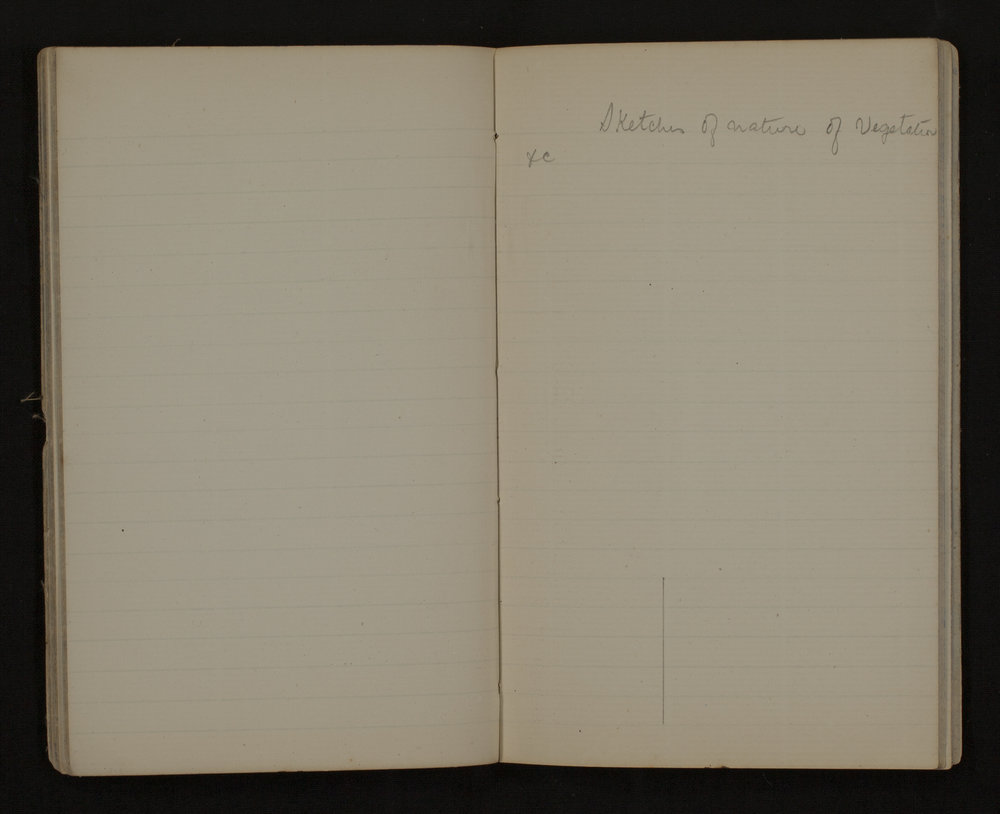 Sketches of nature of Vegetation
&c